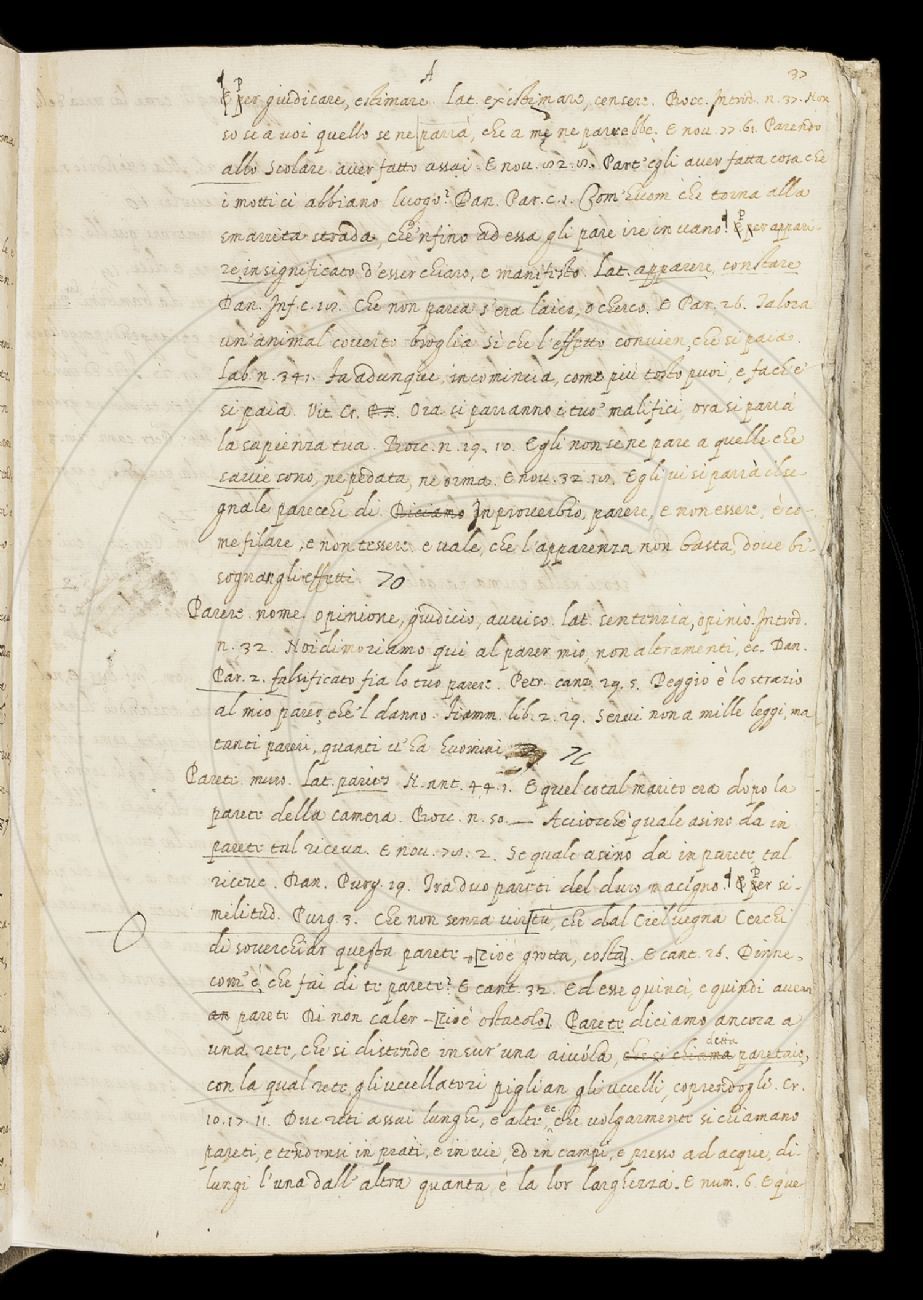 A 37
¶ E P per giudicare, estimare. Lat. existimare, censere. Bocc. Introd. n. 37. Non
so se a voi quello se ne parrà, che a me ne parrebbe. E nov. 77. 61. Parendo
allo Scolare aver fatto assai. E nov. Parv' egli aver fatta cosa che
i motti ci abbiano luogo? Dan. Par. c. 1. Com' huom che torna alla
smarrita strada, che 'nfino ad essa gli pare ire in vano. ¶ E P per appari-
re, in significato d'esser chiaro, e manifesto. Lat. apparere, constare
Dan. Inf. c. 18. Che non parea s'era laico, o cherco. E Par. 26. Talora
un' animal coverto broglia Sì che l'effetto convien, che si paia.
Lab. n. 341. Fa adunque, incomincia, come più tosto puoi, e fa ch' e'
si paia. Vit. Cr. Ora si parranno i tuo' malifici, ora si parrà
la sapienza tua. Bocc. n. 29. 10. Egli non se ne pare a quelle che
savie sono, nè pedata, nè orma. E nov. 32. 18. Egli vi si parrà il se-
gnale parecchi dì. In proverbio, parere, e non essere, è co-
me filare, e non tessere. e vale, che l'apparenza non basta, dove bi-
sognan gli effetti. 70
Parere. nome. opinione, giudicio, avviso. Lat. sententia, opinio. Introd.
n. 32. Noi dimoriamo qui al parer mio, non altramenti, ec. Dan.
Par. 2. falsificato fia lo tuo parere. Petr. canz. 29. 5. Peggio è lo strazio
al mio parer, che 'l danno. Fiamm. lib. 2. 29. Servi non a mille leggi, ma
tanti pareri, quanti v' ha huomini.
Parete. muro. Lat. paries. N. ant. 44. 1. E quel cotal marito era dopo la
parete della camera. Bocc. n. 50. — Acciocchè quale asino da in
parete tal riceva. E nov. 78. 2. Se quale asino da in parete, tal
riceve. Dan. Purg. 19. Tra duo pareti del duro macigno. ¶ E P per si-
militud. Purg. 3. Che non senza virtù, che dal Ciel vegna Cerchi
di soverchiar questa parete -[cioè grotta, costa]. E cant. 26. Dinne,
com' è, che fai di te parete? E cant. 32. Ed esse quinci, e quindi aven
parete Di non caler -[cioè ostacolo]. Parete diciamo ancora a
una rete, che si distende in sur' una aiuola, che si chiama detta paretaio,
con la qual rete, gli uccellatori piglian gli uccelli, coprendogli. Cr.
10. 17. 11. Due reti assai lunghe, e alte ec. che volgarmente si chiamano
pareti, e tendonsi in prati, e in vie, ed in campi, e presso ad acque, di-
lungi l'una dall' altra quanta, è la lor larghezza. E num. 6. E que-